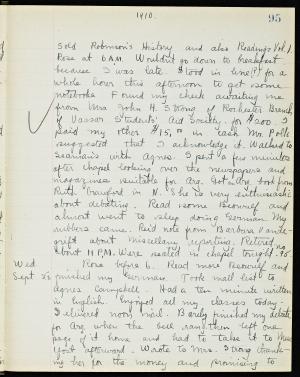 1910.
95
Sold Robinson's History and also Readings Vol. 1.
Rose at 6 A.M. Wouldn't go down to breakfast
because I was late. Stood in line(?) for a
whole hour this afternoon to get some
notebooks. Found my check awaiting me
from Mrs. John H. Strong of Rochester Branch
of Vassar Students' Aid Society, for $200. I
paid my other $15.00 in cash. Mr. Polk
suggested that I acknowledge it. Walked to
Seaman's with Agnes. Spent a few minutes
after chapel looking over the newspapers and
magazines suitable for Arg. Got Arg. book from
Ruth Crawford in N. She is very enthusiastic
about debating. Read some Beowulf and
almost went to sleep doing German. My
rubbers came. Rec'd note from Barbara Vande-
grift about Miscellany reporting. Retired
about 10 P.M. Were sealed in chapel tonight.
Wed. Rose before 6. Read more Beowulf and
Sept. finished my German. Took mail list to
Agnes Campbell. Had a ten minute written
in English. Enjoyed all my classes today.
Delivered noon mail. Barely finished my debate
for Arg. when the bell rang, then left one
page of it home and had to take it to Miss
afterward. Wrote to Mrs. Strong thank-
ing her for the money and promising to